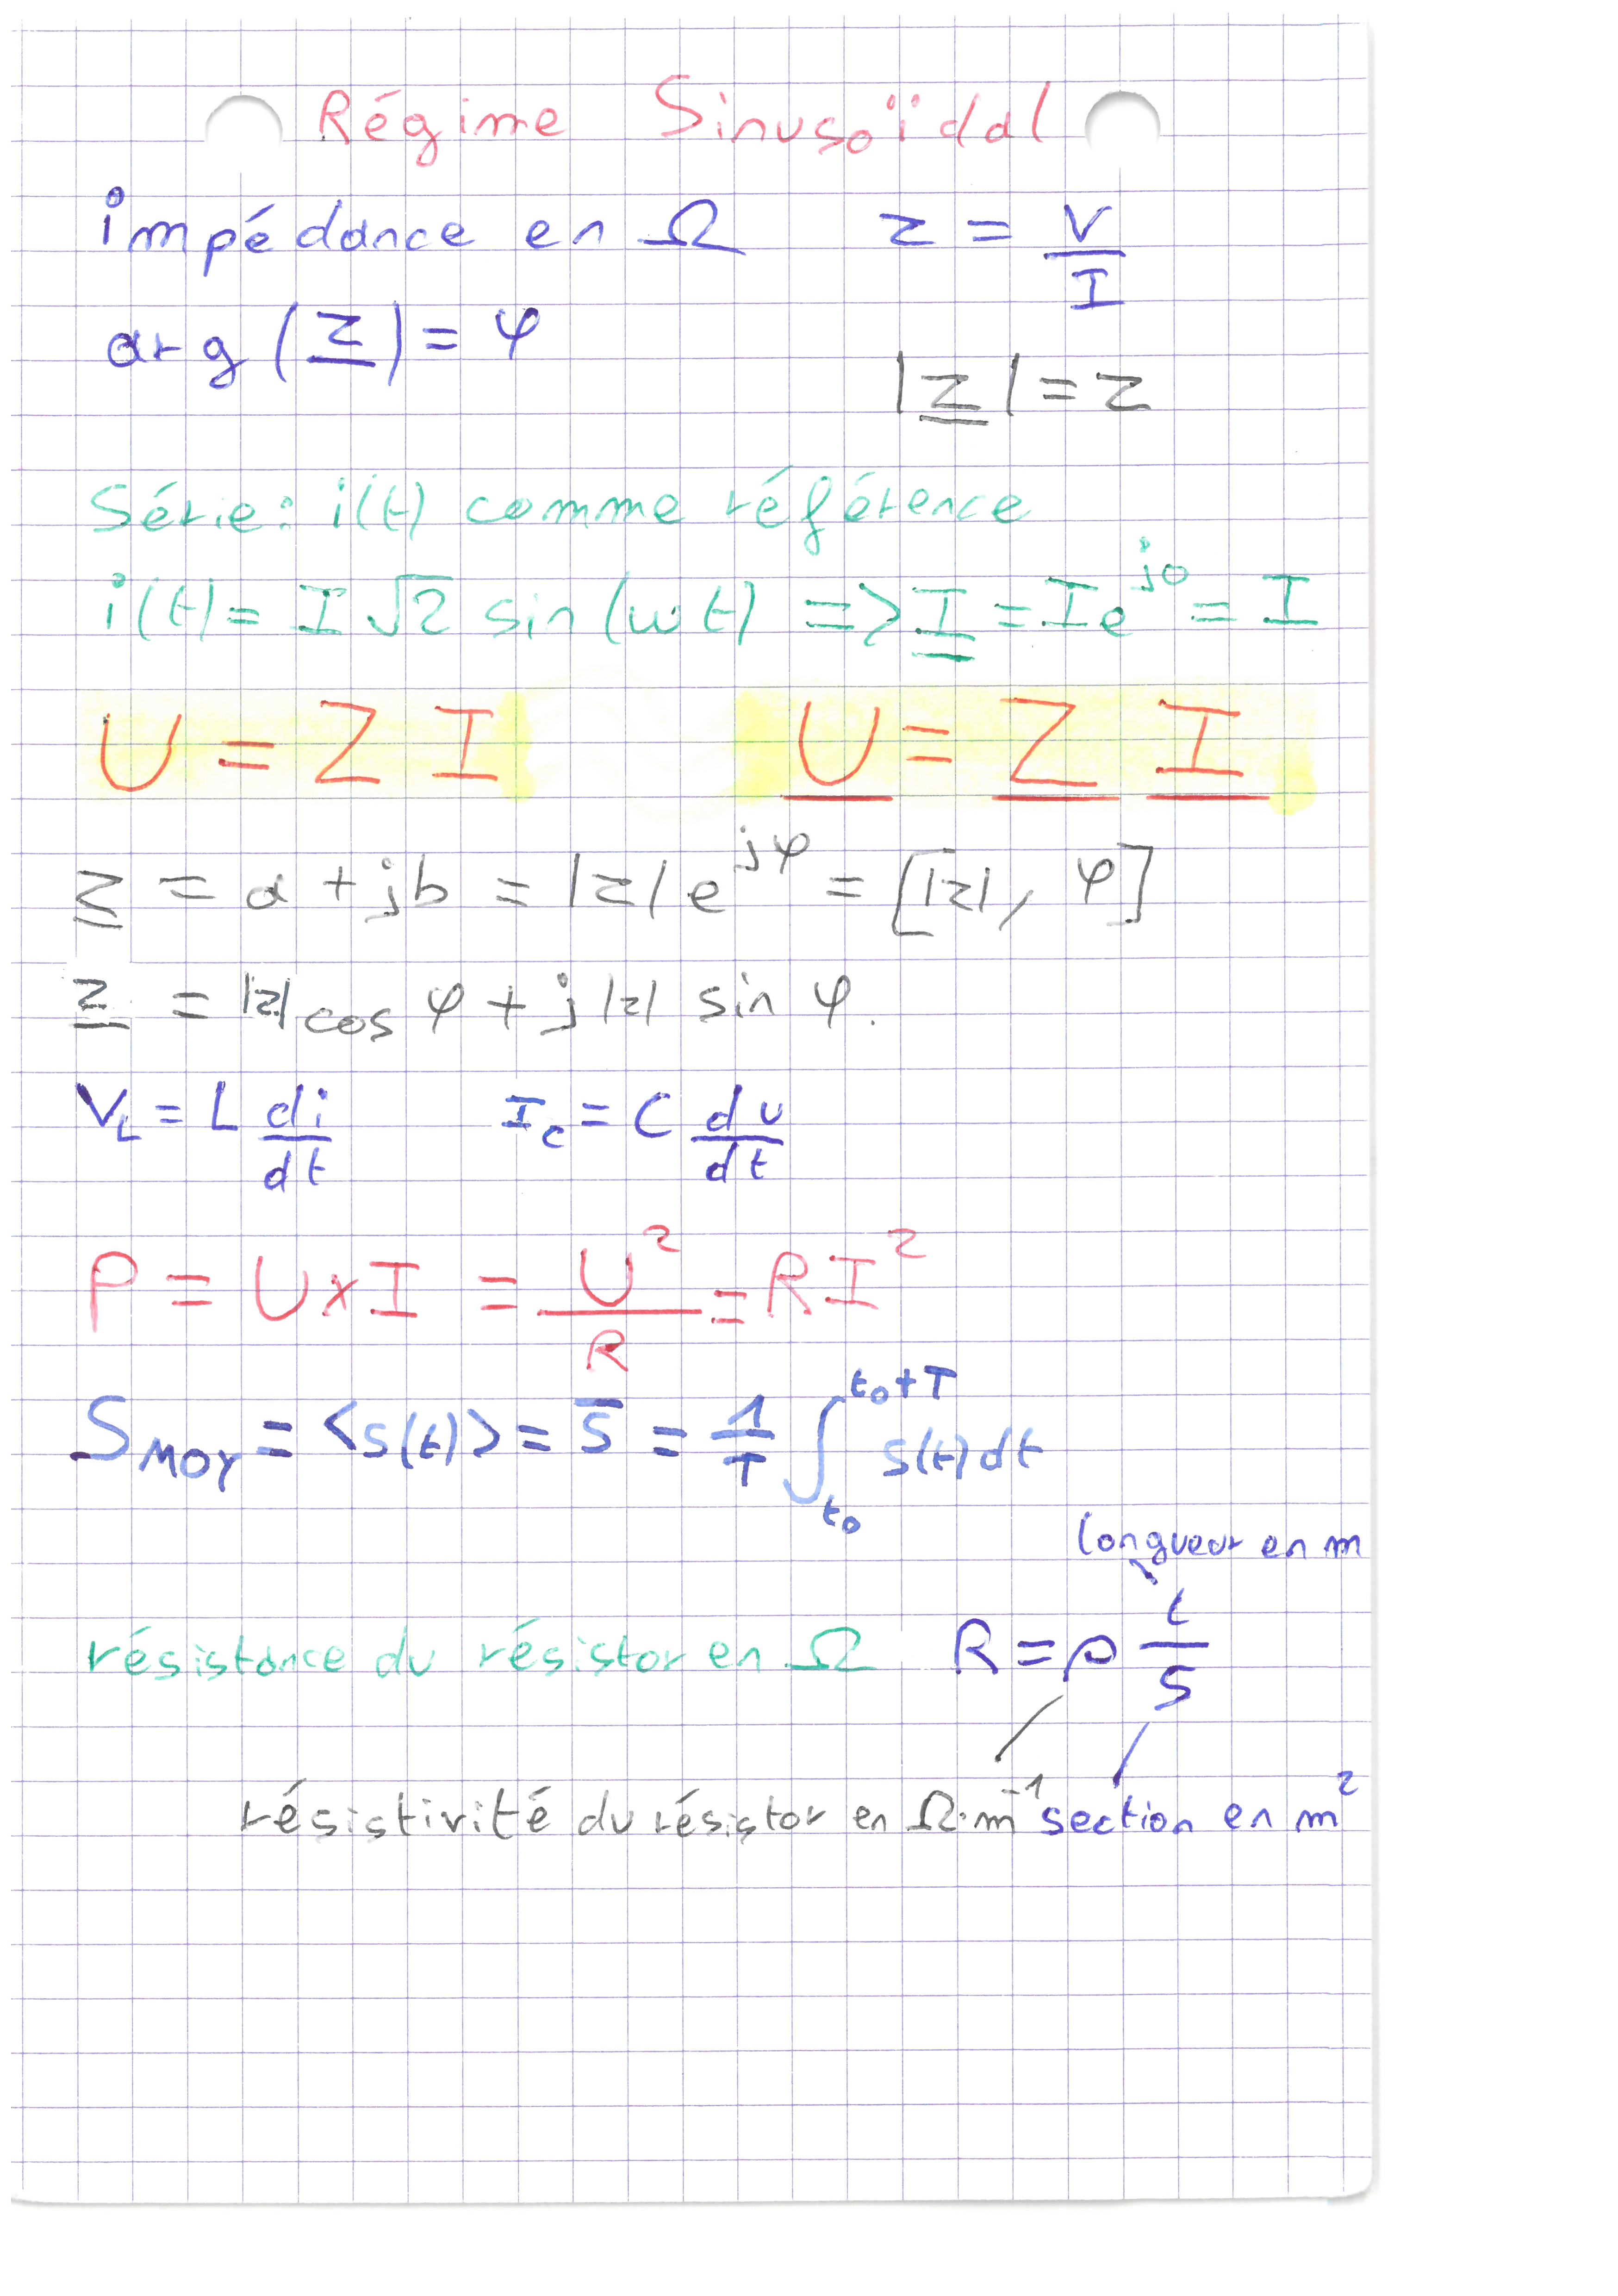 Régime Sinusoïdal
impédance en Ω z = V/I
arg(z) = φ
|z| = z
Série: i(t) comme référence
i(t) = I√2 sin(ωt) => I = Ie^j0 = I
U = Z I U = Z I
z = a + jb = |z| e^jφ = [|z|, φ]
z = |z| cos φ + j |z| sin φ.
V_L = L di/dt I_c = C du/dt
P = U x I = U²/R = RI²
S_MOY = <s(t)> = s̅ = 1/T ∫_t0^t0+T s(t) dt
longueur en m
résistance du résistor en Ω R = ρ l/S
résistivité du résistor en Ω·m⁻¹ section en m²